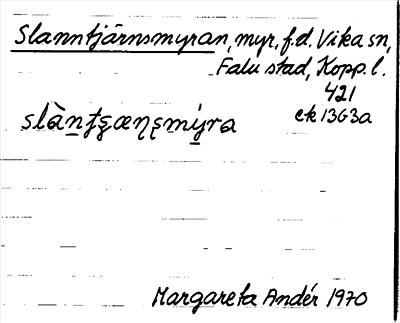 Slanntjärnsmyran, myr, f.d. Vika sn,
Falu stad, Kopp. l.
421
ek 13G3a
slàn̲ƫʂæɳʂmýra
Margareta Andér 1970